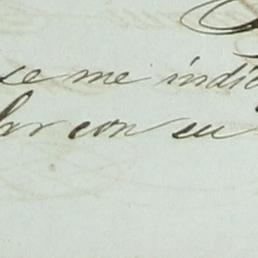 se me indic
lar con su